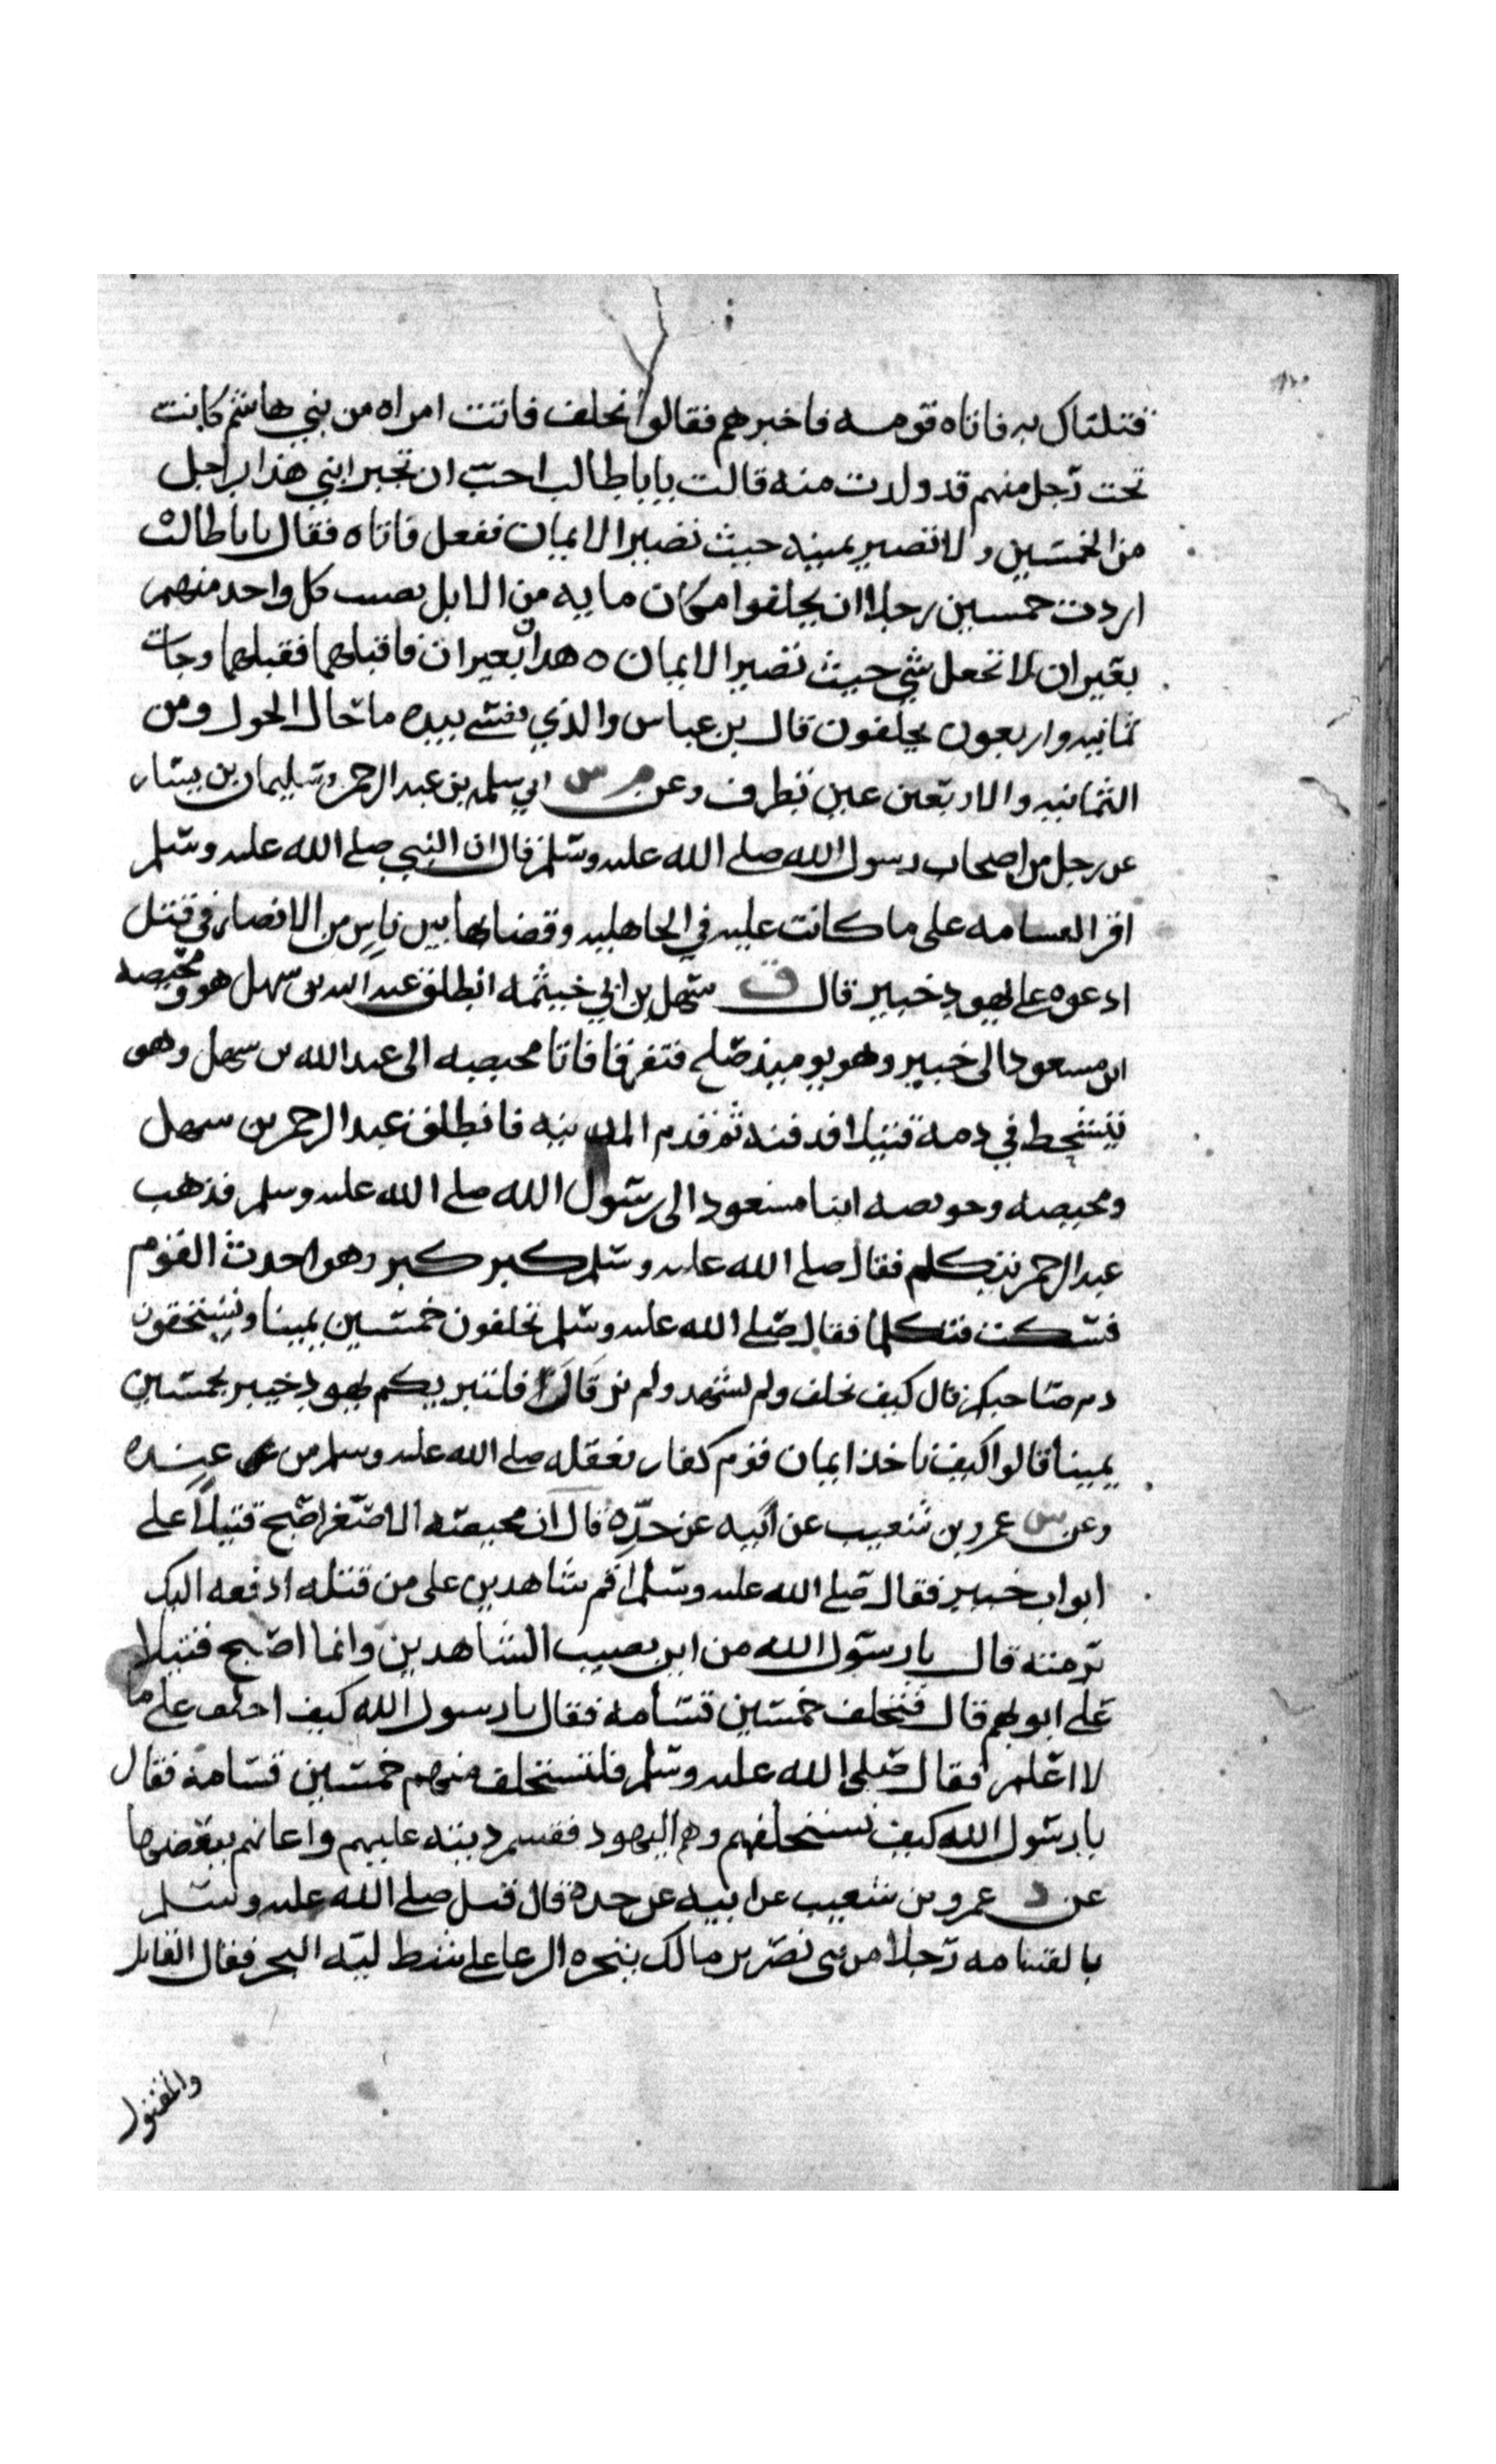 قتلناك به فاتاه قومه فاخبرهم فقالوا نحلف فاتت امراه من بني هاشم كانت
تحت رجل منهم قد ولدت منه قالت يا باطالب احب ان تجير ابني هذا برجل
من الخمسين ولا تصبر يمينه حيث تصبر الايمان ففعل فاتاه فقال يا باطالب
اردت خمسين رجلا ان يحلفوا مكان مايه من الابل نصيب كل واحد منهم
بعيران لا تجعل شي حيث تصير الايمان ه هدان بعيران فاقبلهما فقبلهما وجات
ثمانيه واربعون يحلفون قال بن عباس والذي نفسي بيده ما حال الحول ومن
الثمانيه والاربعين عين تطرف وعن م س ابي سلمه بن عبد الرحمن وسليمان بن يسار
عن رجل من اصحاب رسول الله صلى الله عليه وسلم قال ان النبي صلى الله عليه وسلم
اقر القسامه على ما كانت عليه في الجاهليه وقضا بها بين ناس من الانصار في قتيل
ادعوه على يهود خيبر قال ق سهل بن ابي خيثمه انطلق عبد الله بن سهل هو ومحيصه
ابن مسعود الى خيبر وهو يوميذ صلح فتفرقا فاتا محيصه الى عبد الله بن سهل وهو
يتشحط في دمه قتيلا فدفنه ثم قدم المدينه فانطلق عبد الرحمن بن سهل
ومحيصه وحويصه ابنا مسعود الى رسول الله صلى الله عليه وسلم فذهب
عبد الرحمن يتكلم فقال صلى الله عليه وسلم كبر كبر وهو احدث القوم
فسكت فتكلما فقال صلى الله عليه وسلم تحلفون خمسين يمينا وتستحقون
دم صاحبكم قال كيف نحلف ولم نشهد ولم نر قال فلتبريكم يهود خيبر بخمسين
يمينا قالوا كيف ناخذ ايمان قوم كفار فعقله صلى الله عليه وسلم من عنده
وعن س عمرو بن شعيب عن ابيه عن جده قال ان محيصه الاصغر اصبح قتيلا على
ابواب خيبر فقال صلى الله عليه وسلم اقم شاهدين على من قتله ادفعه اليك
برمته قال يا رسول الله من اين نصيب الشاهدين وانما اصبح قتيلا
على ابوابهم قال فتحلف خمسين قسامه فقال يا رسول الله كيف احلف على ما
لا اعلم فقال صلى الله عليه وسلم فلتستحلف منهم خمسين قسامه فقال
يا رسول الله كيف نستحلفهم وهم اليهود فقسم ديته عليهم واعانهم ببعضها
عن د عمرو بن شعيب عن ابيه عن جده قال قتل صلى الله عليه وسلم
بالقسامه رجلا من بني نصر بن مالك ببحره الرعا على شط ليه البحر فقال القاتل
والمقتول